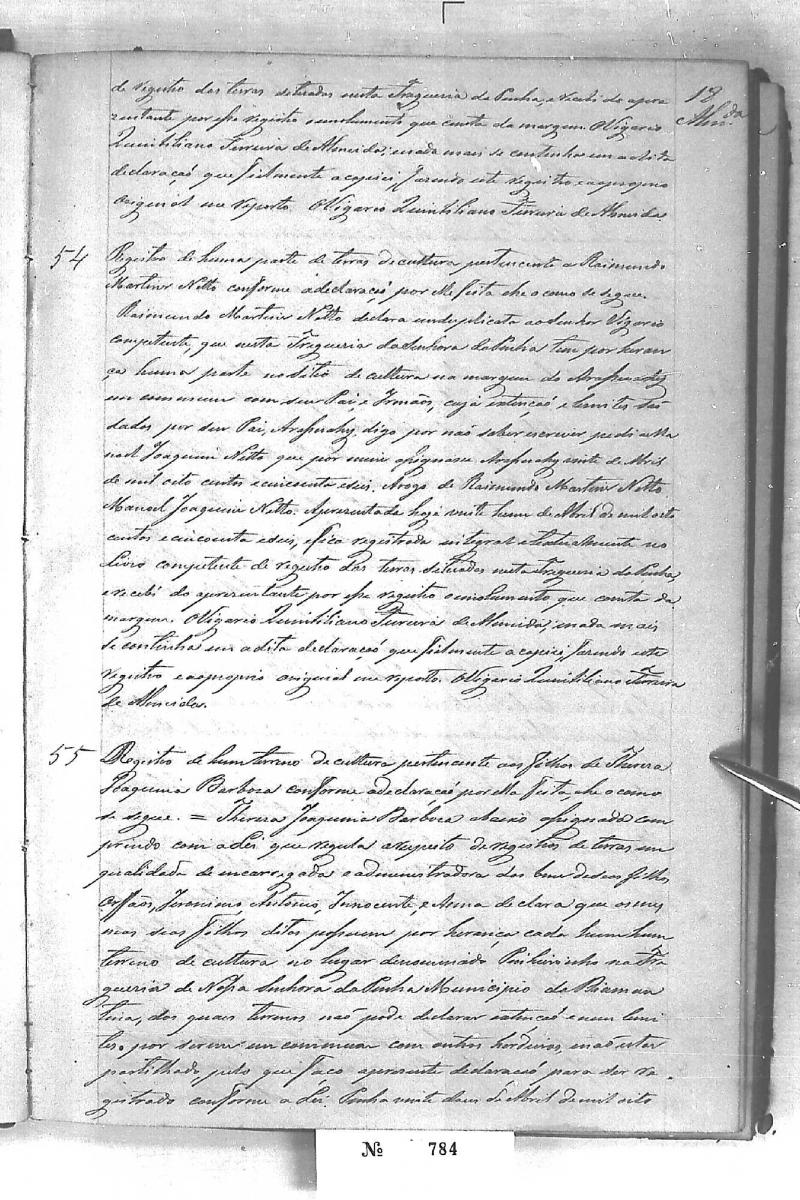 de registro das terras setuadas nesta Fregueria da Penha, e recebi do apre
zentante por esse registro o emolumento que consta da margem. Oligario
Quintiliano Ferreira de Almeida; enada mais se continha em a dita
declaração que fielmente a copiei, fazendo este registro, e ao proprio
original me reporto. Oligario Quintiliano Ferreira de Almeida.
18
Almda
54
Registro de huma parte de terras de cultura pertencente a Raimundo
Martins Netto conforme a declaração por elle feita he o como se segue.
Raimundo Martins Netto declara em duplicata ao Senhor Vigario
competente, que nesta Fregueria da Senhora da Penha tem por heran
ça huma parte no sitio de cultura na margem do Arassuahy
em commum com seu Pai, e Irmãos, cuja extenção e lemites são
dados por seu Pai, Arassuahy, digo por não saber escrever pedi a Ma
noel Joaquim Netto que por mim assignase Arassuahy vinte de Abril
de mil oito centos e cincoenta e seis. Arogo de Raimundo Martins Netto
Manoel Joaquim Netto. Aprezentada hoje vinte hum de Abril de mil oito
centos e cincoenta e seis, e fica registrada integral e textualmente no
Livro competente de registro das terras setuadas nesta Fregueria da Penha,
e recebi do aprezentante por esse registro o emolumento, que consta da
margem. Oligario Quintiliano Ferreira de Almeida; enada mais
se continha em a dita declaração que fielmente a copiei, fazendo este
registro e ao proprio original me reporto. Oligario Quintiliano Ferreira
de Almeida.
55
Registro de hum terreno de cultura pertencente aos filhos de Thereza
Joaquina Barboza conforme a declaração por Ella feita, he o como
se segue. = Thereza Joaquina Barboza abaixo assignada com
prindo com a Lei que regula a respeito de registros de terras em
qualidade de encarregada e administradora dos bens de seos filhos
Orfãos, Jeronimo Antonio, Innocente, e Anna declara que os mes
mos seos filhos ditos possuem por herança cada hum hum
terreno de cultura no lugar denominado Pinheirinho na Fre
gueria de Nossa Senhora da Penha Municipio da Diaman
tina, dos quais terrenos não pode declarar extenção e nem limi
tes. por serem em commum com outros herdeiros, e não estar
partilhado, pelo que faço a presente declaração para ser re
gistrado conforme a Lei. Penha vinte dous de Abril de mil oito
№ 784